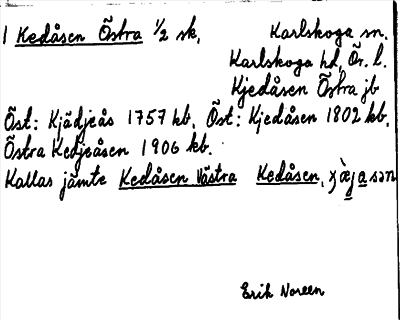 1 Kedåsen Östra 1/2 sk. Karlskoga sn.
Karlskoga hd, Ör. l.
Kjedåsen Östra jb
Öst: Kjädjeås 1757 kb. Öst: Kjedåsen 1802 kb.
Östra Kedjeåsen 1906 kb.
Kallas jämte Kedåsen Västra Kedåsen,
Erik Noreen